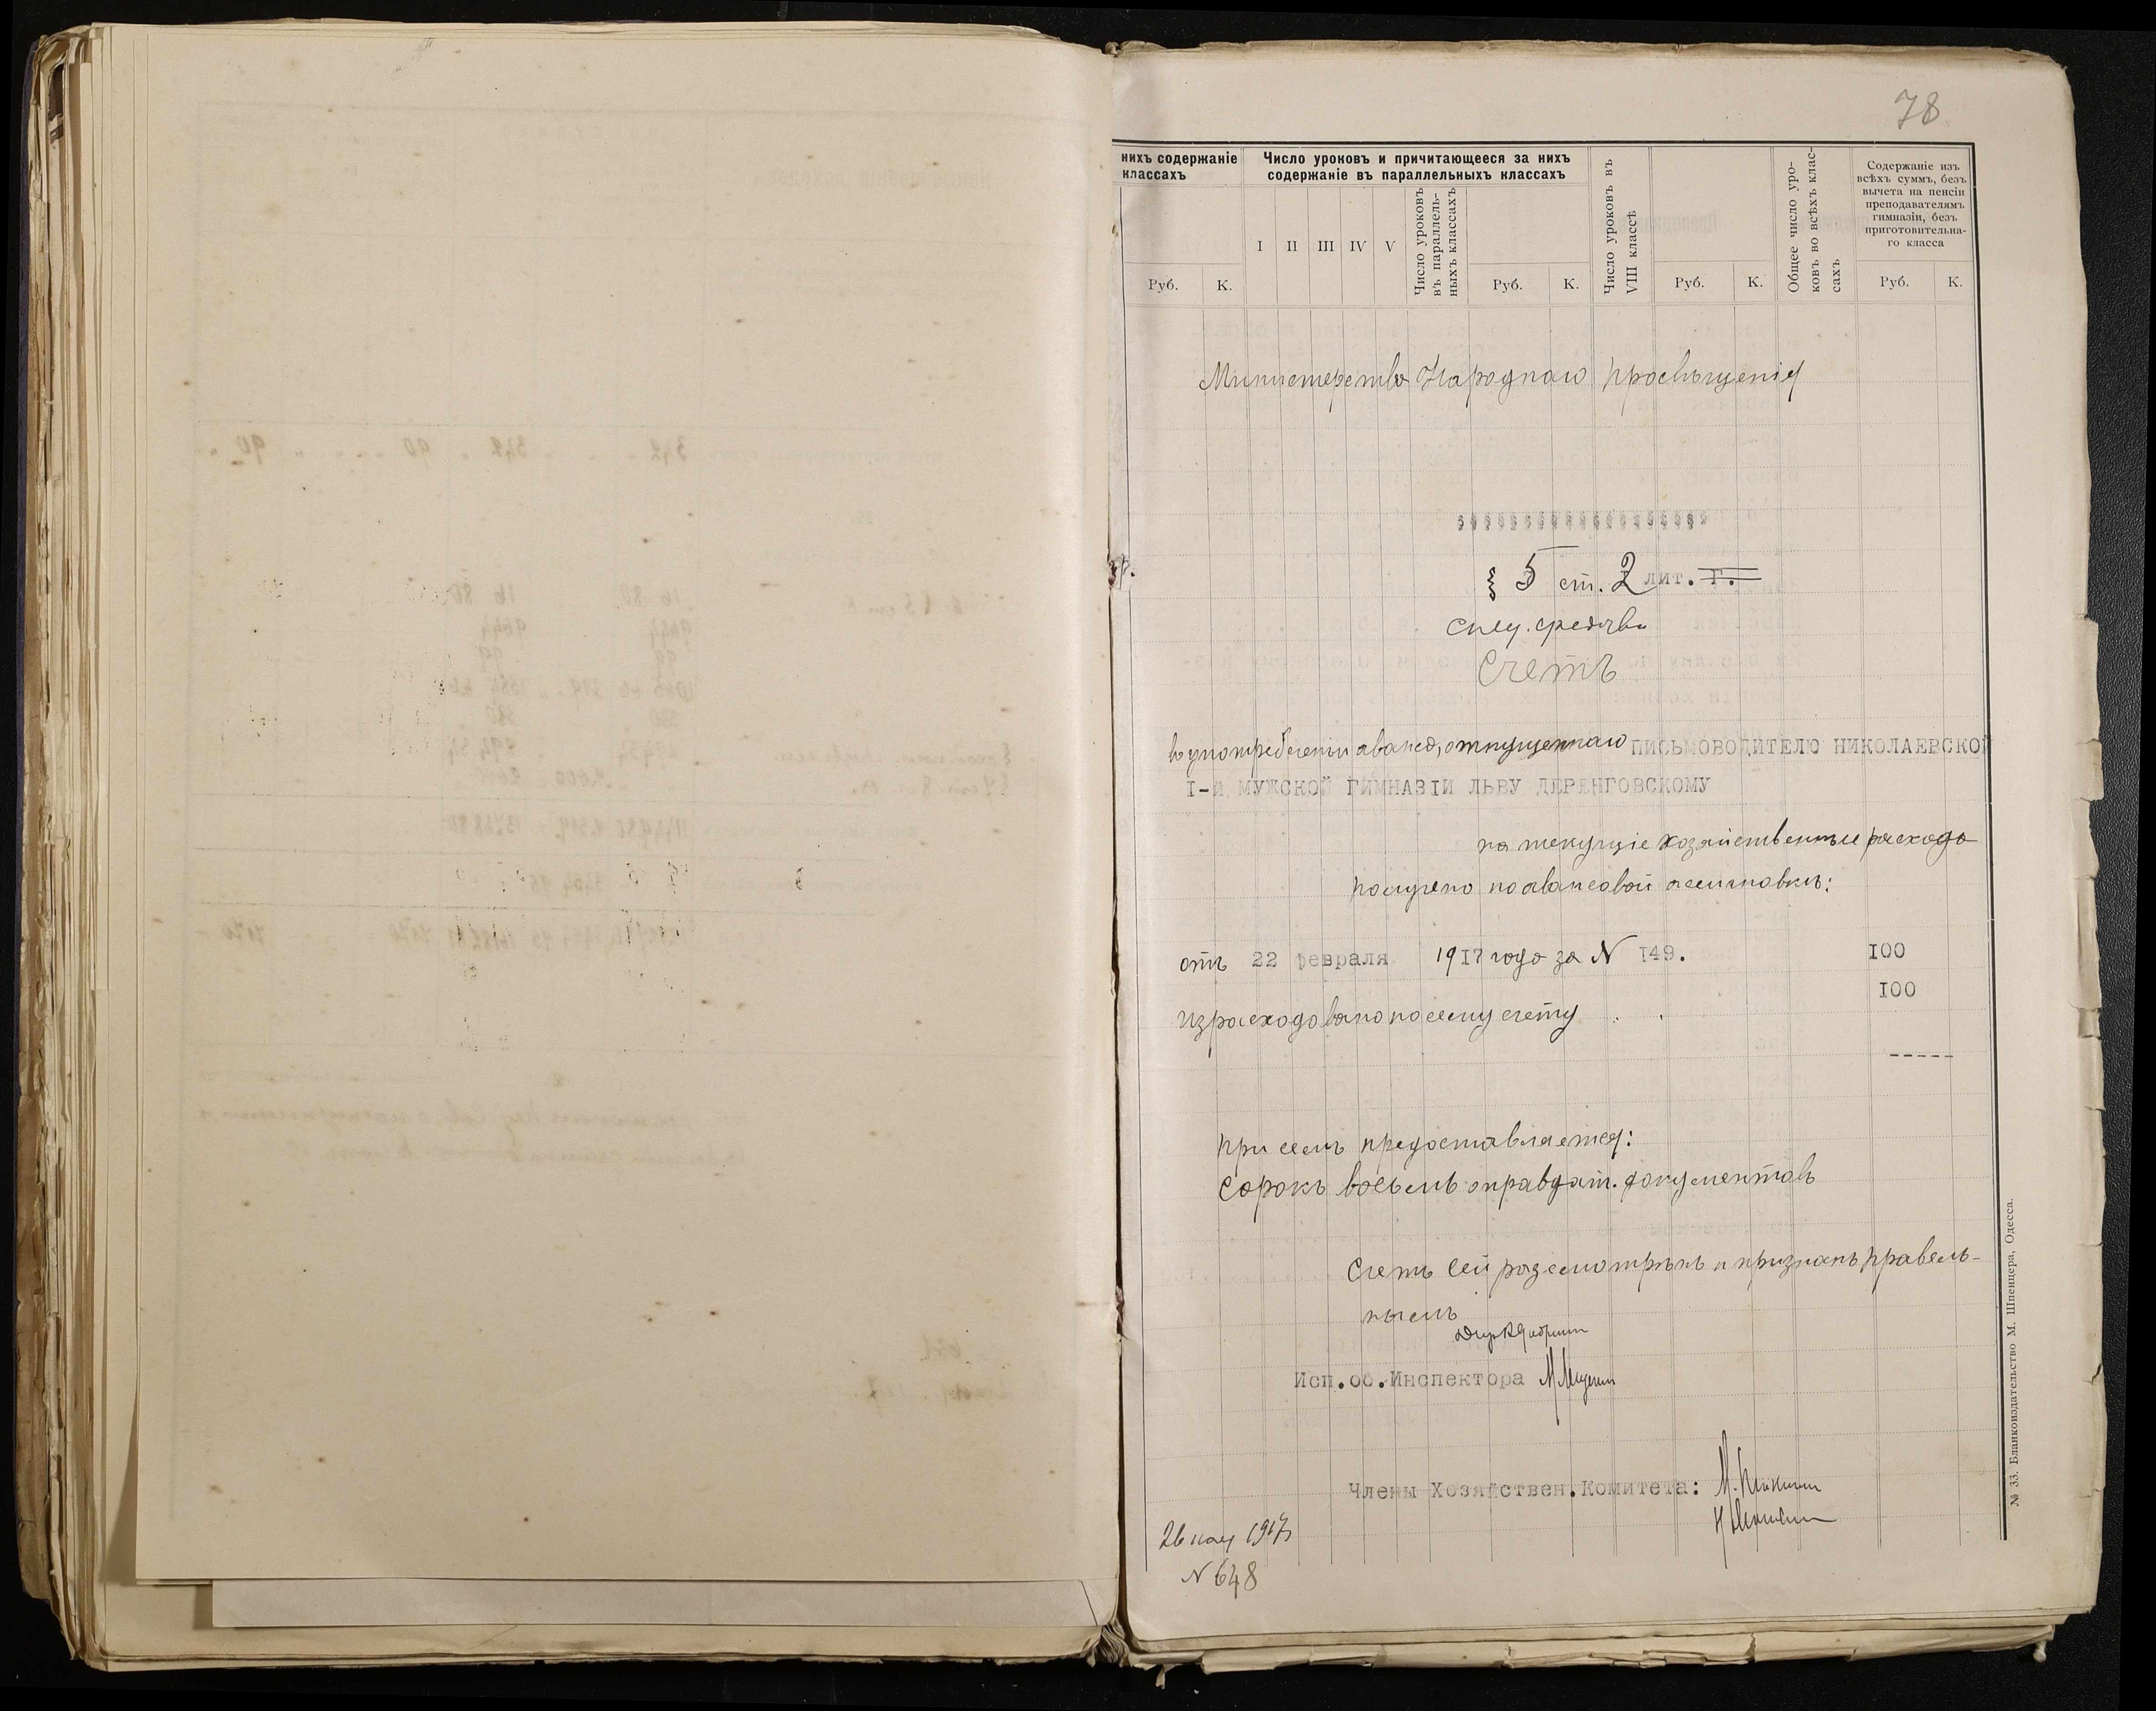 78
нихъ содержаніе
классахъ
Руб. К.
Число уроковъ и причитающееся за нихъ
содержаніе въ параллельныхъ классахъ
I II III IV V
Число уроковъ
въ параллель-
ныхъ классахъ
Руб. К.
Число уроковъ въ
VIII классѣ
Руб. К.
Общее число уро-
ковъ во всѣхъ клас-
сахъ
Содержаніе изъ
всѣхъ суммъ, безъ
вычета на пенсіи
преподавателямъ
гимназіи, безъ
приготовительна-
го класса
Руб. К.
Министерство Народнаго Просвѣщенія
§ 5 ст. 2 лит. г.
спец. средствъ
Счетъ
въ употребленіи аванса, отпущеннаго ПИСЬМОВОДИТЕЛЮ НИКОЛАЕВСКОЙ
I-Й МУЖСКОЙ ГИМНАЗІИ ЛЬВУ ДЕРЕНГОВСКОМУ
на текущіе хозяйственные расходы
получено по авансовой ассигновкѣ:
отъ 22 февраля 1917 года за N 149. 100
израсходовано по сему счету . . 100
-----
При семъ предоставляется:
Сорокъ восемь оправдат. документовъ
Счетъ сей разсмотрѣнъ и признанъ правель-
нымъ
Исп.об.Инспектора
Члены Хозяйствен.Комитета:
26 мая 1917
N 648
№ 33. Бланкоиздательство М. Шпенцера, Одесса.